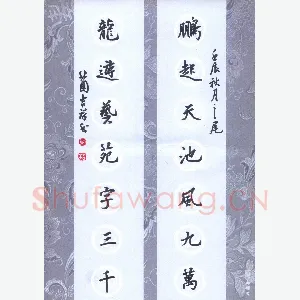 壬辰秋月之尾
鹏起天池風九萬
龍遊藝苑字三千
吉祥書
Shufawang.CN